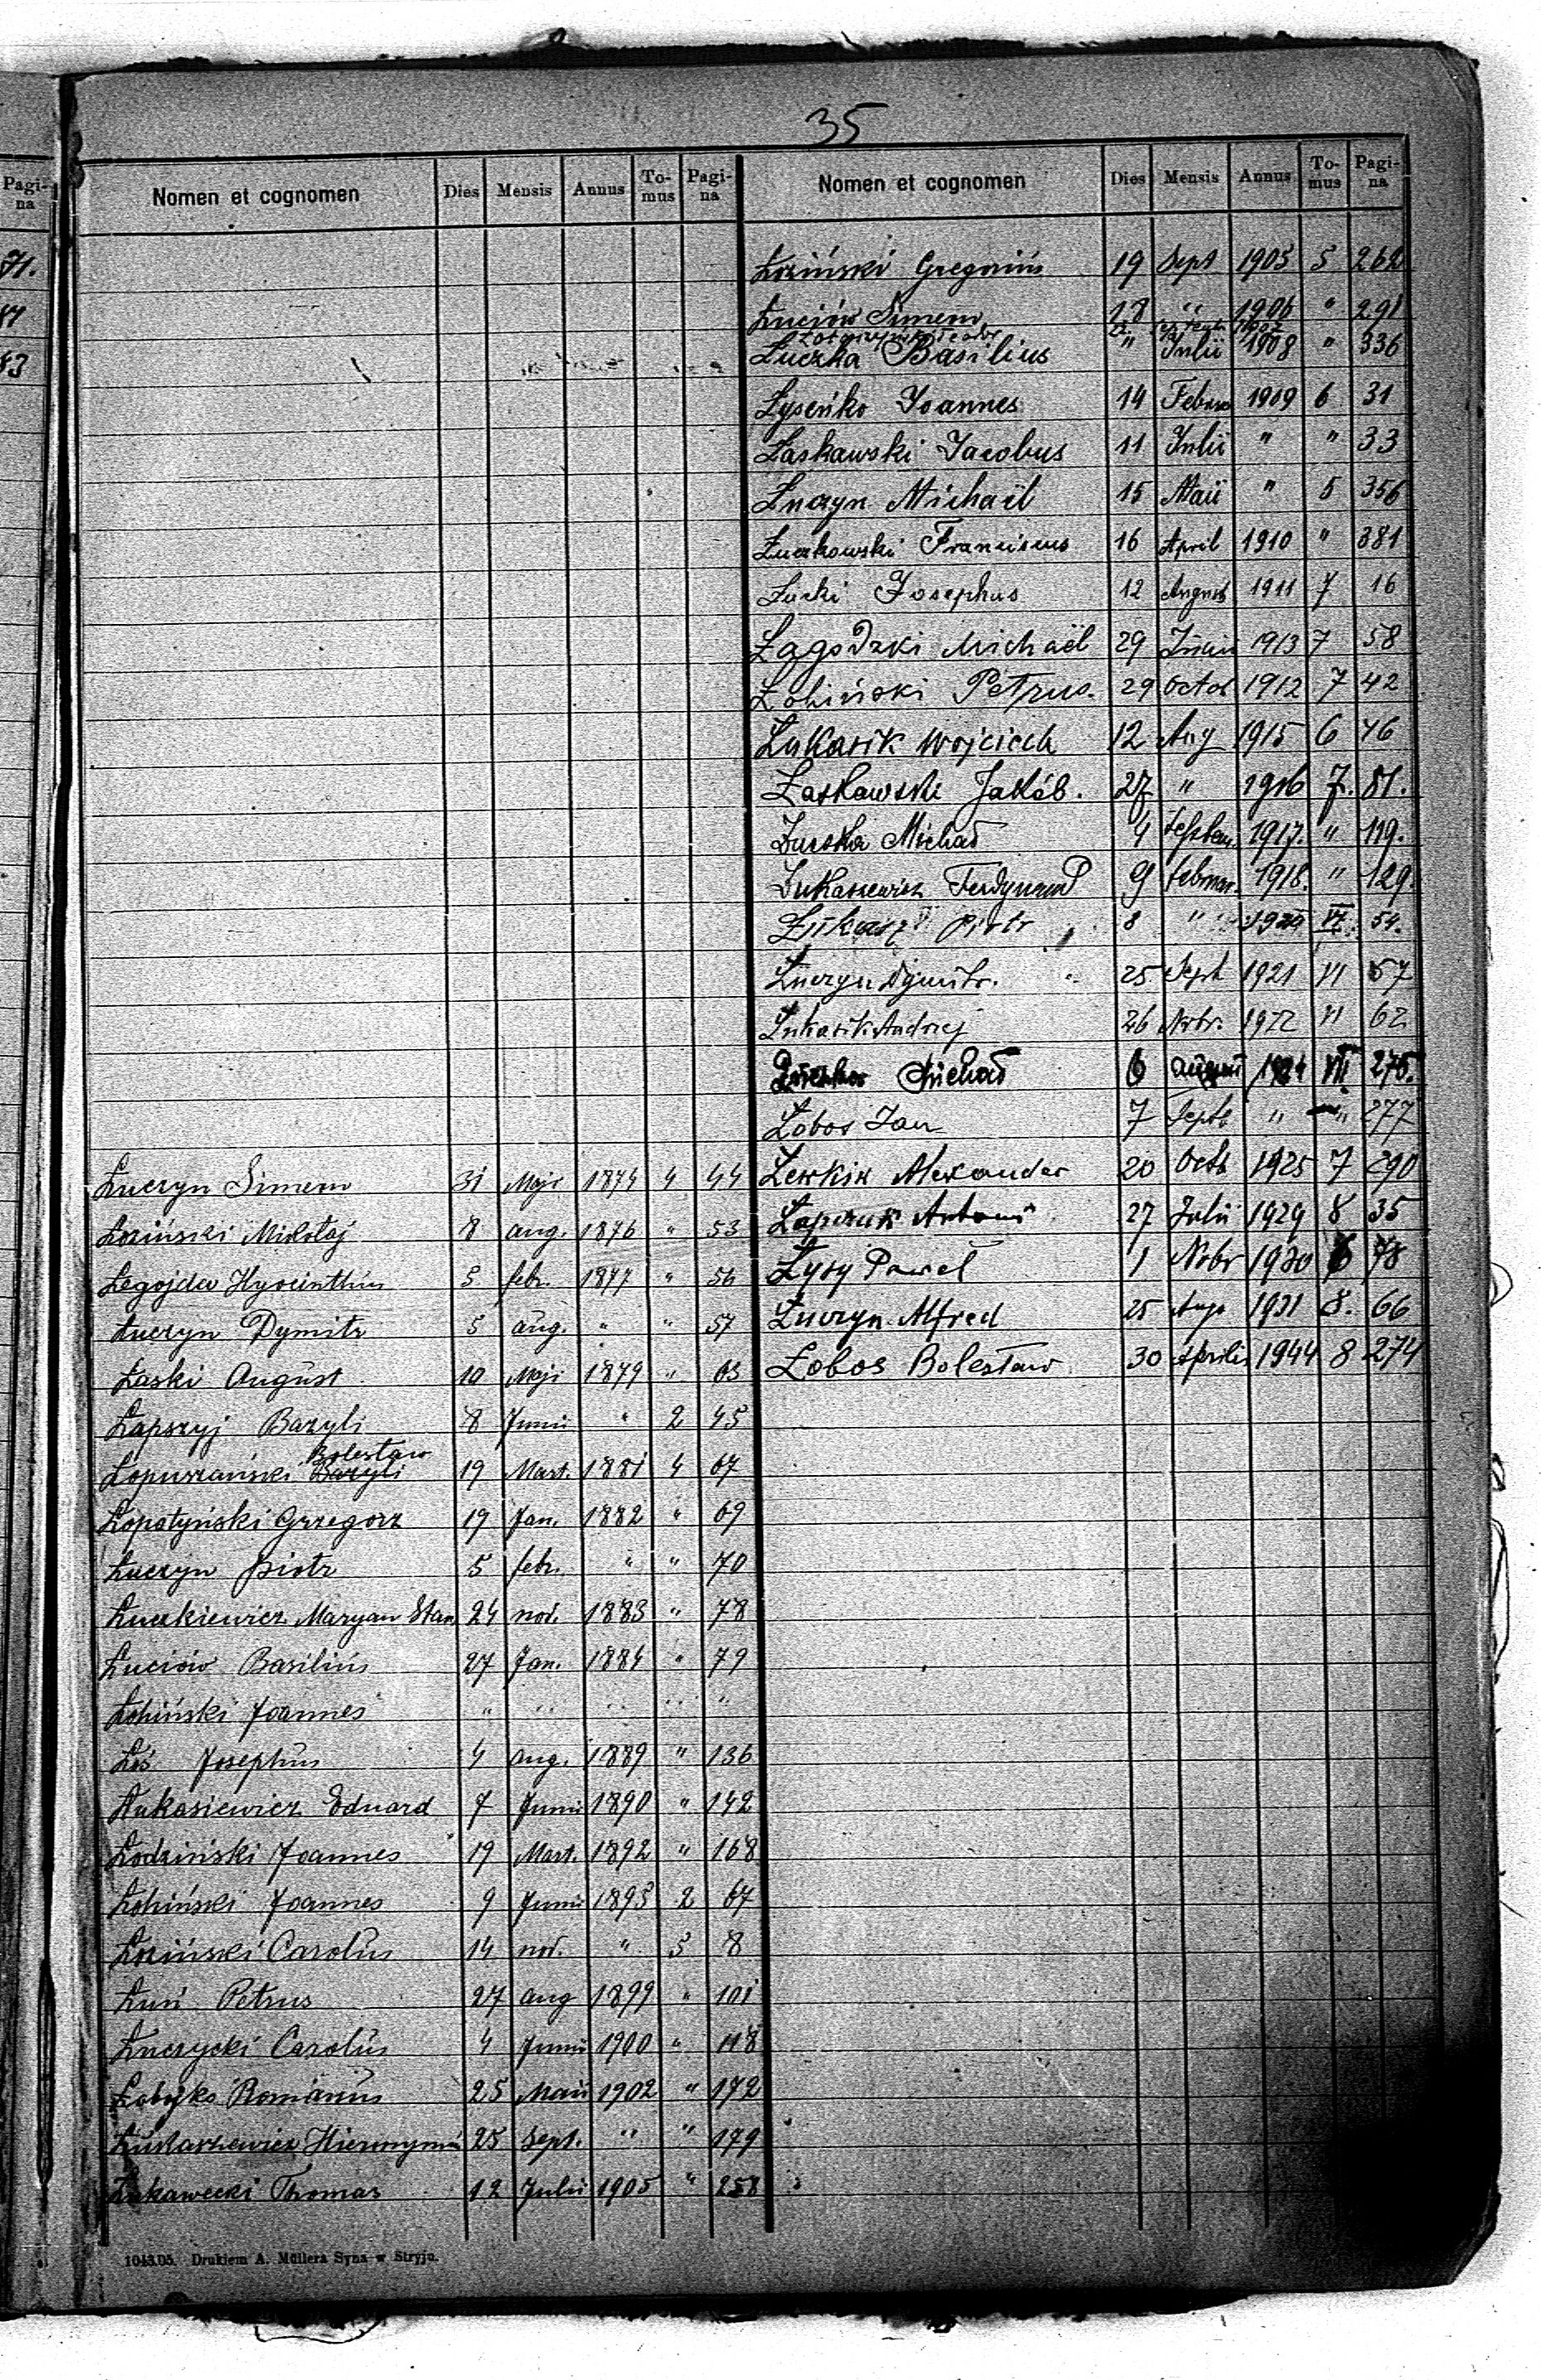 35
Pagi-
na
71.
83
Nomen et cognomen Dies Mensis Annus To-
mus Pagi-
na
Łuczyn Simeon 31 Maji 1874 4 44
Łoziński Mikołaj 8 aug. 1876 " 53
Łegojda Hyacinthus 5 febr. 1877 " 56
Łuczyn Dymitr 5 aug. " " 57
Łaski August 10 Maji 1879 " 63
Łapszyj Bazyli 8 Junii " 2 45
Bolesław
Łopuszański Bazyli 19 Mart. 1881 4 67
Łopatyński Grzegorz 19 Jan. 1882 " 69
Łuczyn Piotr 5 febr. " " 70
Łuczkiewicz Maryan Stan. 24 nov. 1883 " 78
Łuciów Basilius 27 Jan. 1884 " 79
Łohiński Joannes " " " " "
Łoś Josephus 4 aug. 1889 " 136
Łukasiewicz Eduard 7 Junii 1890 " 142
Łodziński Joannes 19 Mart. 1892 " 168
Łohiński Joannes 9 Junii 1895 2 67
Łoziński Carolus 14 nov. " 5 8
Łuń Petrus 27 aug 1899 " 101
Łuczycki Carolus 4 Junii 1900 " 118
Łobojko Romanus 25 Maii 1902 " 172
Łukaszewicz Hieronymus 25 Sept. " " 179
Łukawecki Thomas 12 Julii 1905 " 258
Nomen et cognomen Dies Mensis Annus To-
mus Pagi-
na
Łoziński Gregorius 19 Sept 1905 5 262
Łuciów Simeon 18 " 1906 " 291
22 1907
Łuczka Basilius " Julii 1908 " 336
Łyseńko Joannes 14 Februar 1909 6 31
Łaskawski Jacobus 11 Julii " " 33
Łuczyn Michaël 15 Maii " 5 356
Łuczkowski Franciscus 16 April 1910 " 381
Łucki Josephus 12 August 1911 7 16
Łagodzki Michaël 29 Junii 1913 7 58
Łohiński Petrus. 29 Octob 1912 7 42
Łukasik Wojciech 12 Aug 1915 6 46
Łaskawski Jakób. 27 " 1916 7. 81.
Łucska Michał 4 Septem. 1917. " 119.
Łukaszewicz Ferdynand 9 februar. 1918. " 129.
Łukasz Piotr 8 " VI. 54.
Łuczyn Dymitr. 25 Sept 1921 VI 57
Łukasik Andrzej 26 Nvbr. 1922 VI 62
Michał 6 august 1924 VII. 276.
Łobos Jan 7 Septb " " 277
Lewkiw Alexander 20 Octb 1925 7 290
Łapczuk Antoni 27 Julii 1929 8 35
Łysy Paweł 1 Nobr 1930 6 78
Łuczyn Alfred 25 Augs 1931 8. 66
Łobos Bolesław 30 Aprilis 1944 8 274
1043.05. Drukiem A. Müllera Syna w Stryju.